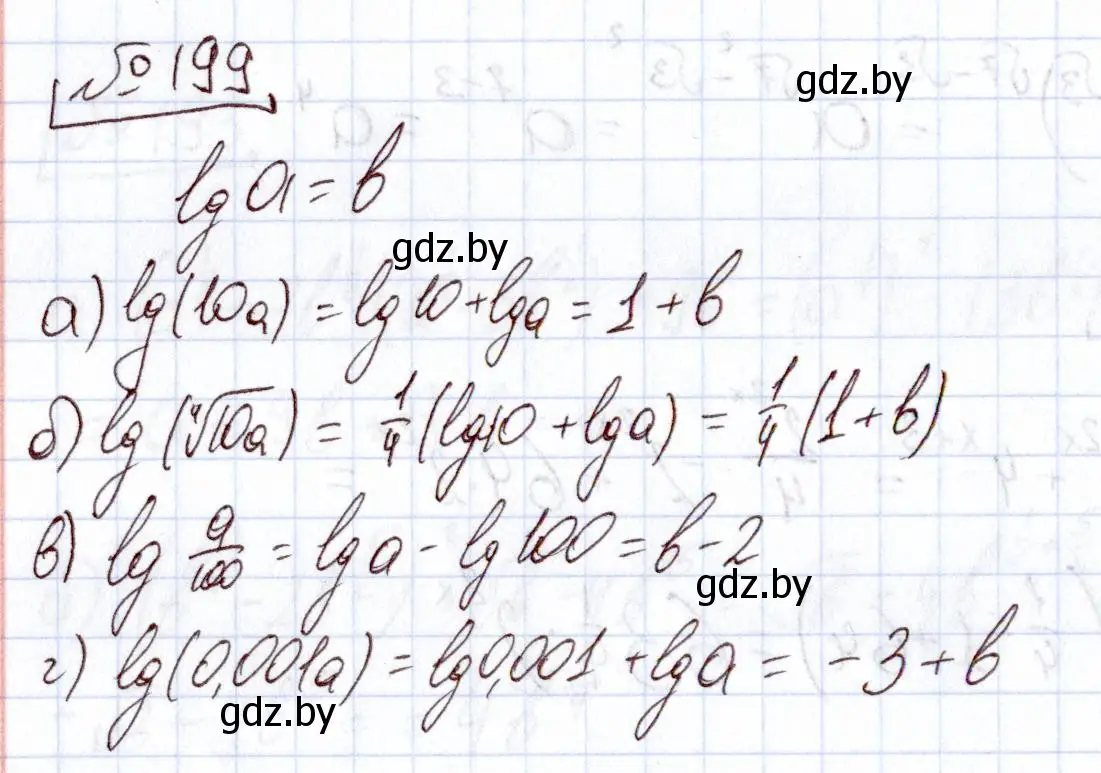 № 199
gdz.by
lg a = b
gdz.by
а) lg(10a) = lg 10 + lg a = 1 + b
б) lg(⁴√10a) = 1/4 (lg 10 + lg a) = 1/4 (1 + b)
в) lg a/100 = lg a - lg 100 = b - 2
gdz.by
г) lg(0,001a) = lg 0,001 + lg a = -3 + b
gdz.by